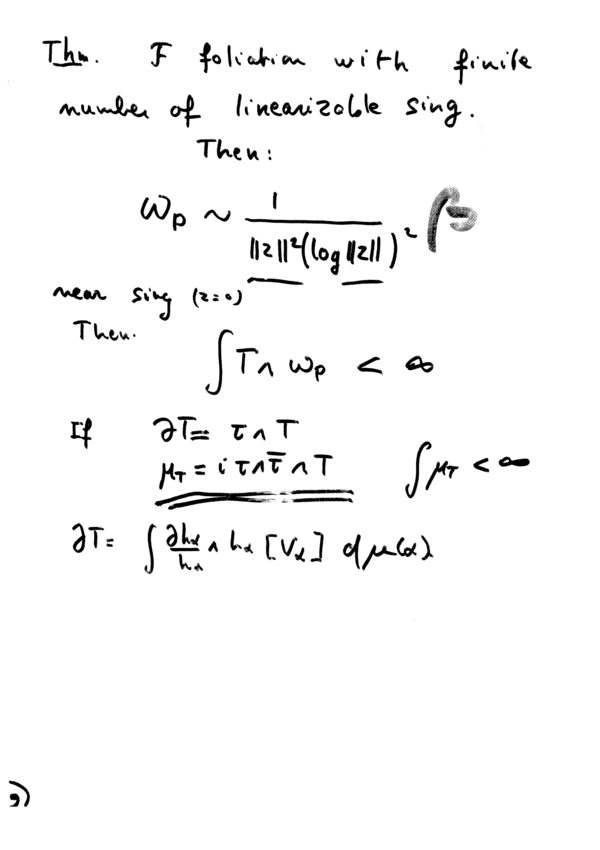 Thm. F foliation with finite
number of linearizable sing.
Then:
ω_P ~ 1 / ‖z‖²(log ‖z‖)² β
near sing (z=0)
Then.
∫ T ∧ ω_P < ∞
If ∂T = τ ∧ T
μ_T = i τ ∧ τ̄ ∧ T ∫ μ_T < ∞
∂T = ∫ ∂h_α / h_α ∧ h_α [V_α] dμ(α)
9)